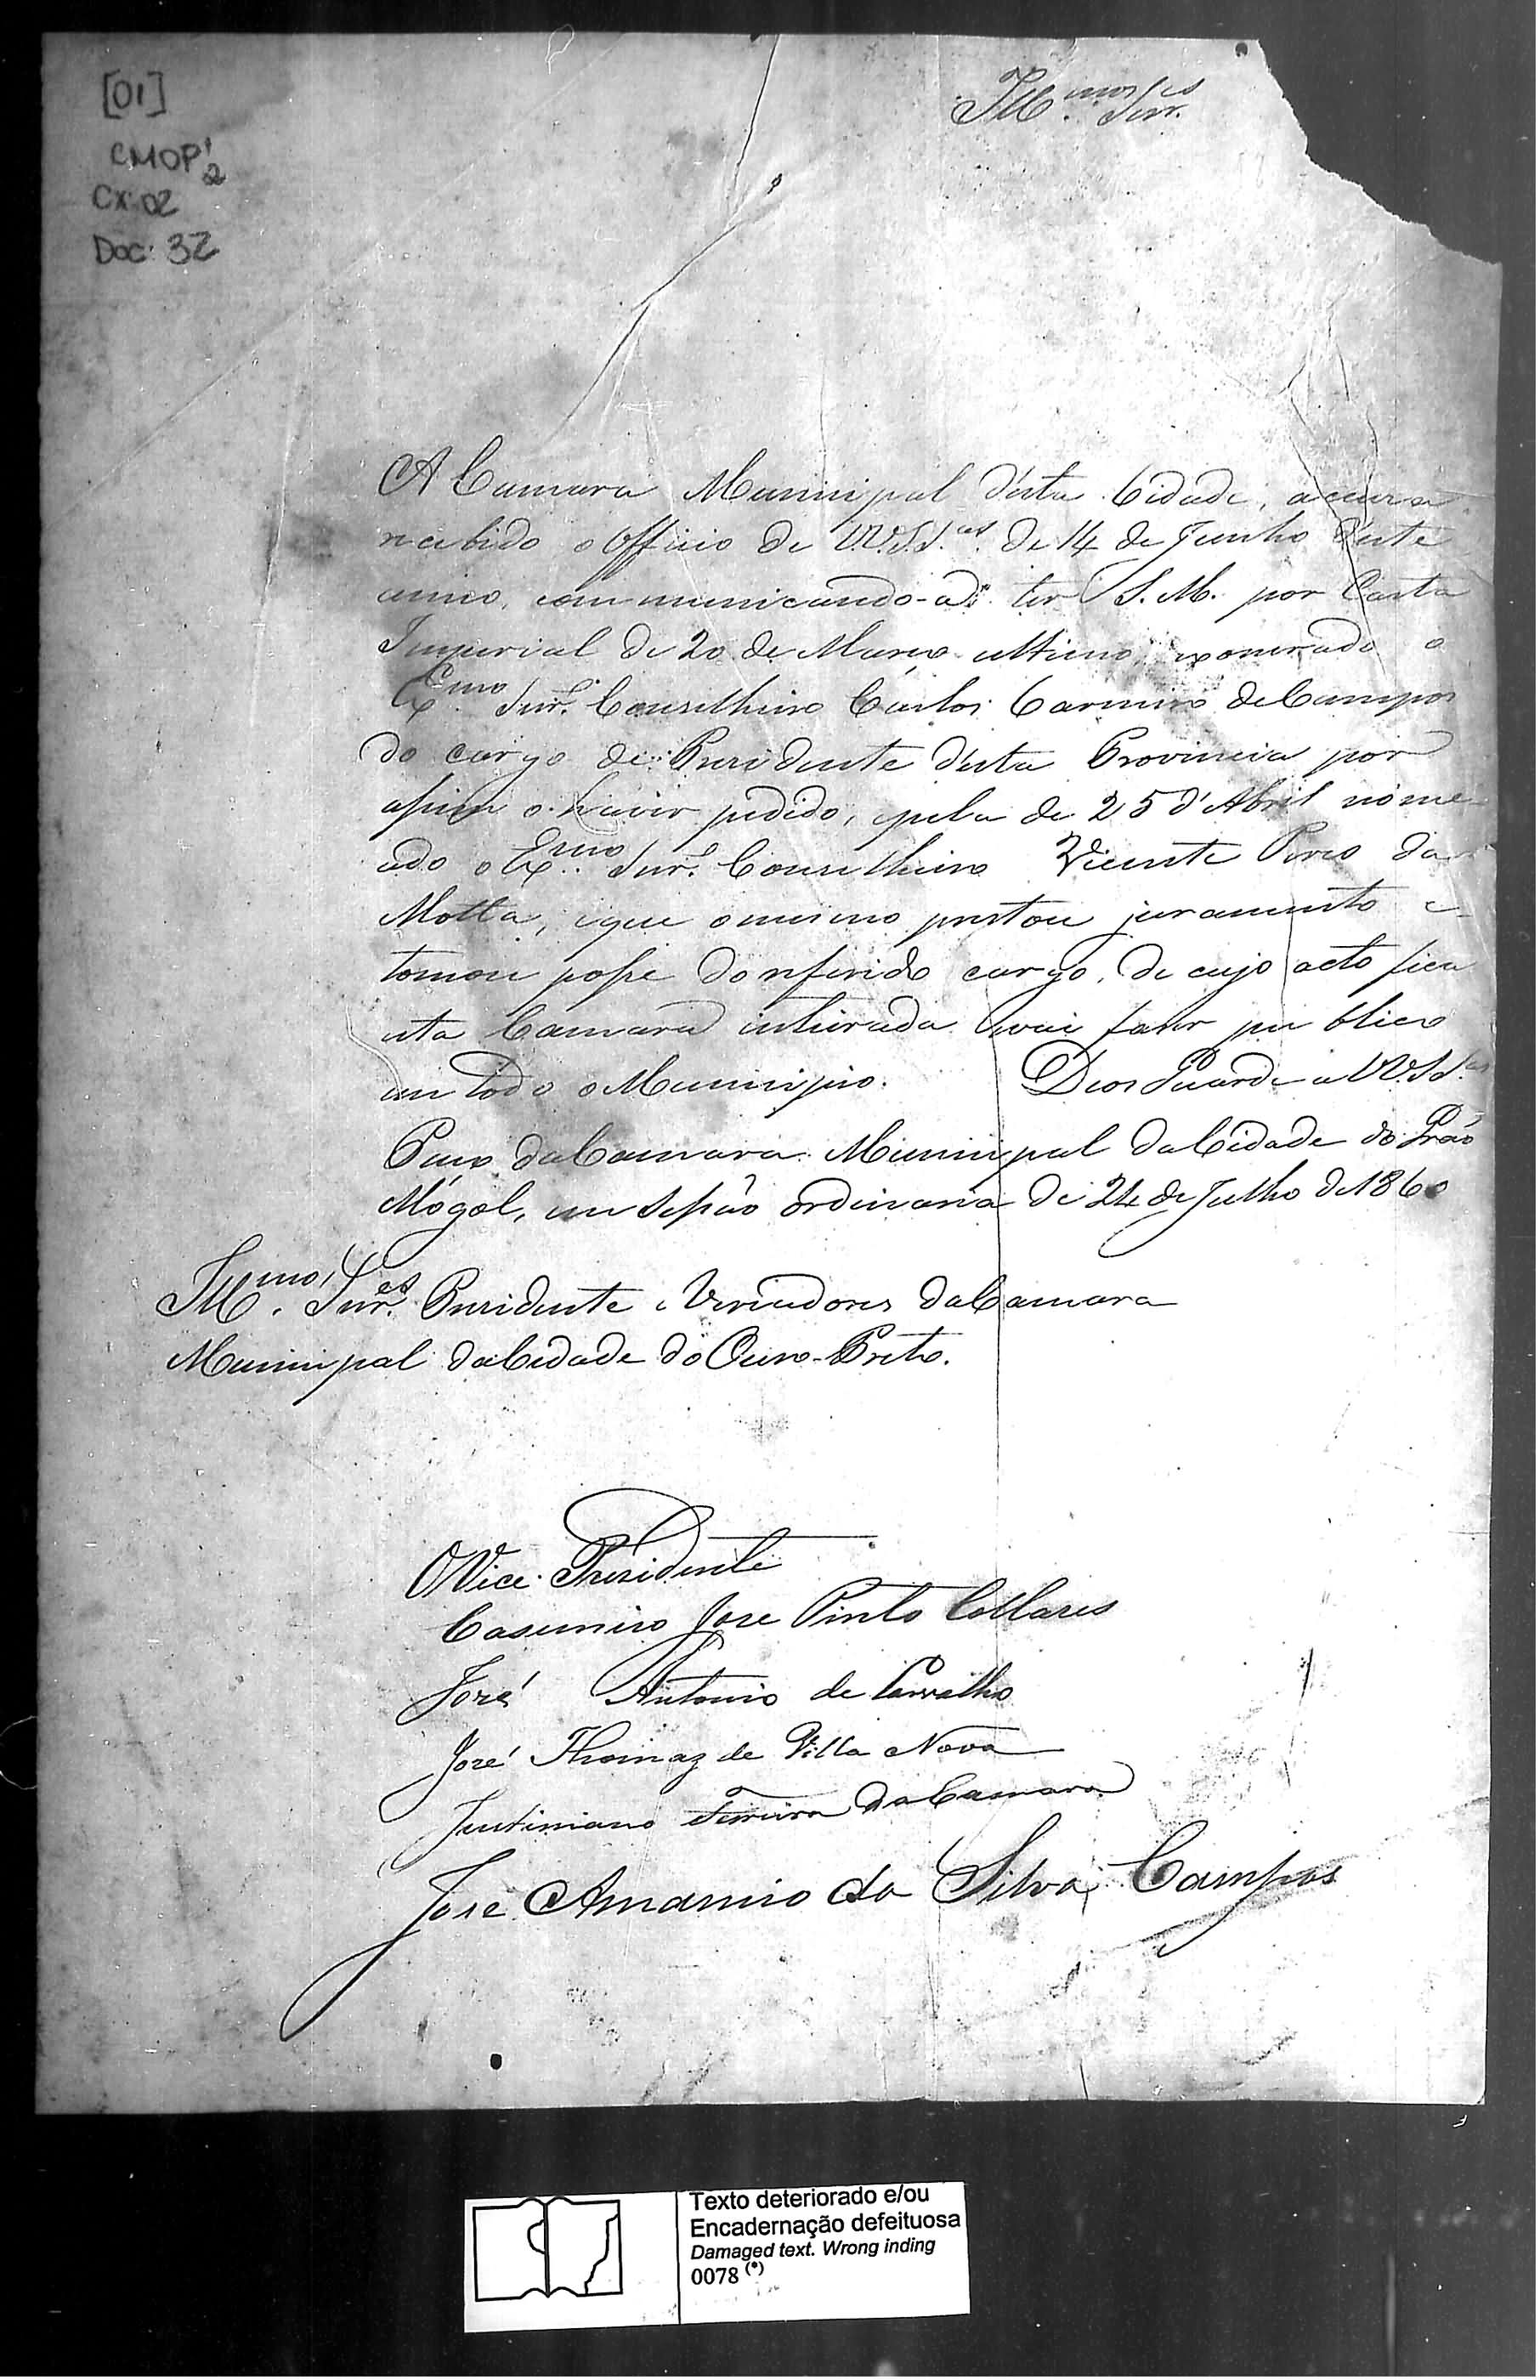 [01]
CMOP 1/2
Cx: 02
Doc: 32
Ill.mos Snr.es
A Camara Municipal d'esta Cidade, accusa
recebido o Officio de VV.SS.as de 14 de Junho d'este
anno, communicando-a de ter S. M. por Carta
Imperial de 20 de Março ultimo, exonerado o
Ex.mo Snr. Conselheiro Carlos Carneiro de Campos
do cargo de Presidente d'esta Provincia por
assim o haver pedido, e pela de 25 d'Abril nome-
ado o Ex.mo Snr. Conselheiro Vicente Pires da
Motta, e que o mesmo prestou juramento e
tomou posse do referido cargo, de cujo acto fica
esta Camara inteirada e vai faser publico
em todo o Municipio. Deos Guarde a VV.SS.as
Paço da Camara Municipal da Cidade do Grão
Mógol, em sessão ordinaria de 24 de Julho de 1860
Ill.mos Snr.es Presidente e Vereadores da Camara
Municipal da Cidade do Ouro-Preto.
O Vice-Presidente
Casemiro Jose Pinto Collares
José Antonio de Carvalho
José Thomaz de Villa Nova
Justiniano Ferreira da Camara
Jose Amancio da Silva Campos
Texto deteriorado e/ou
Encadernação defeituosa
Damaged text. Wrong inding
0078 (*)